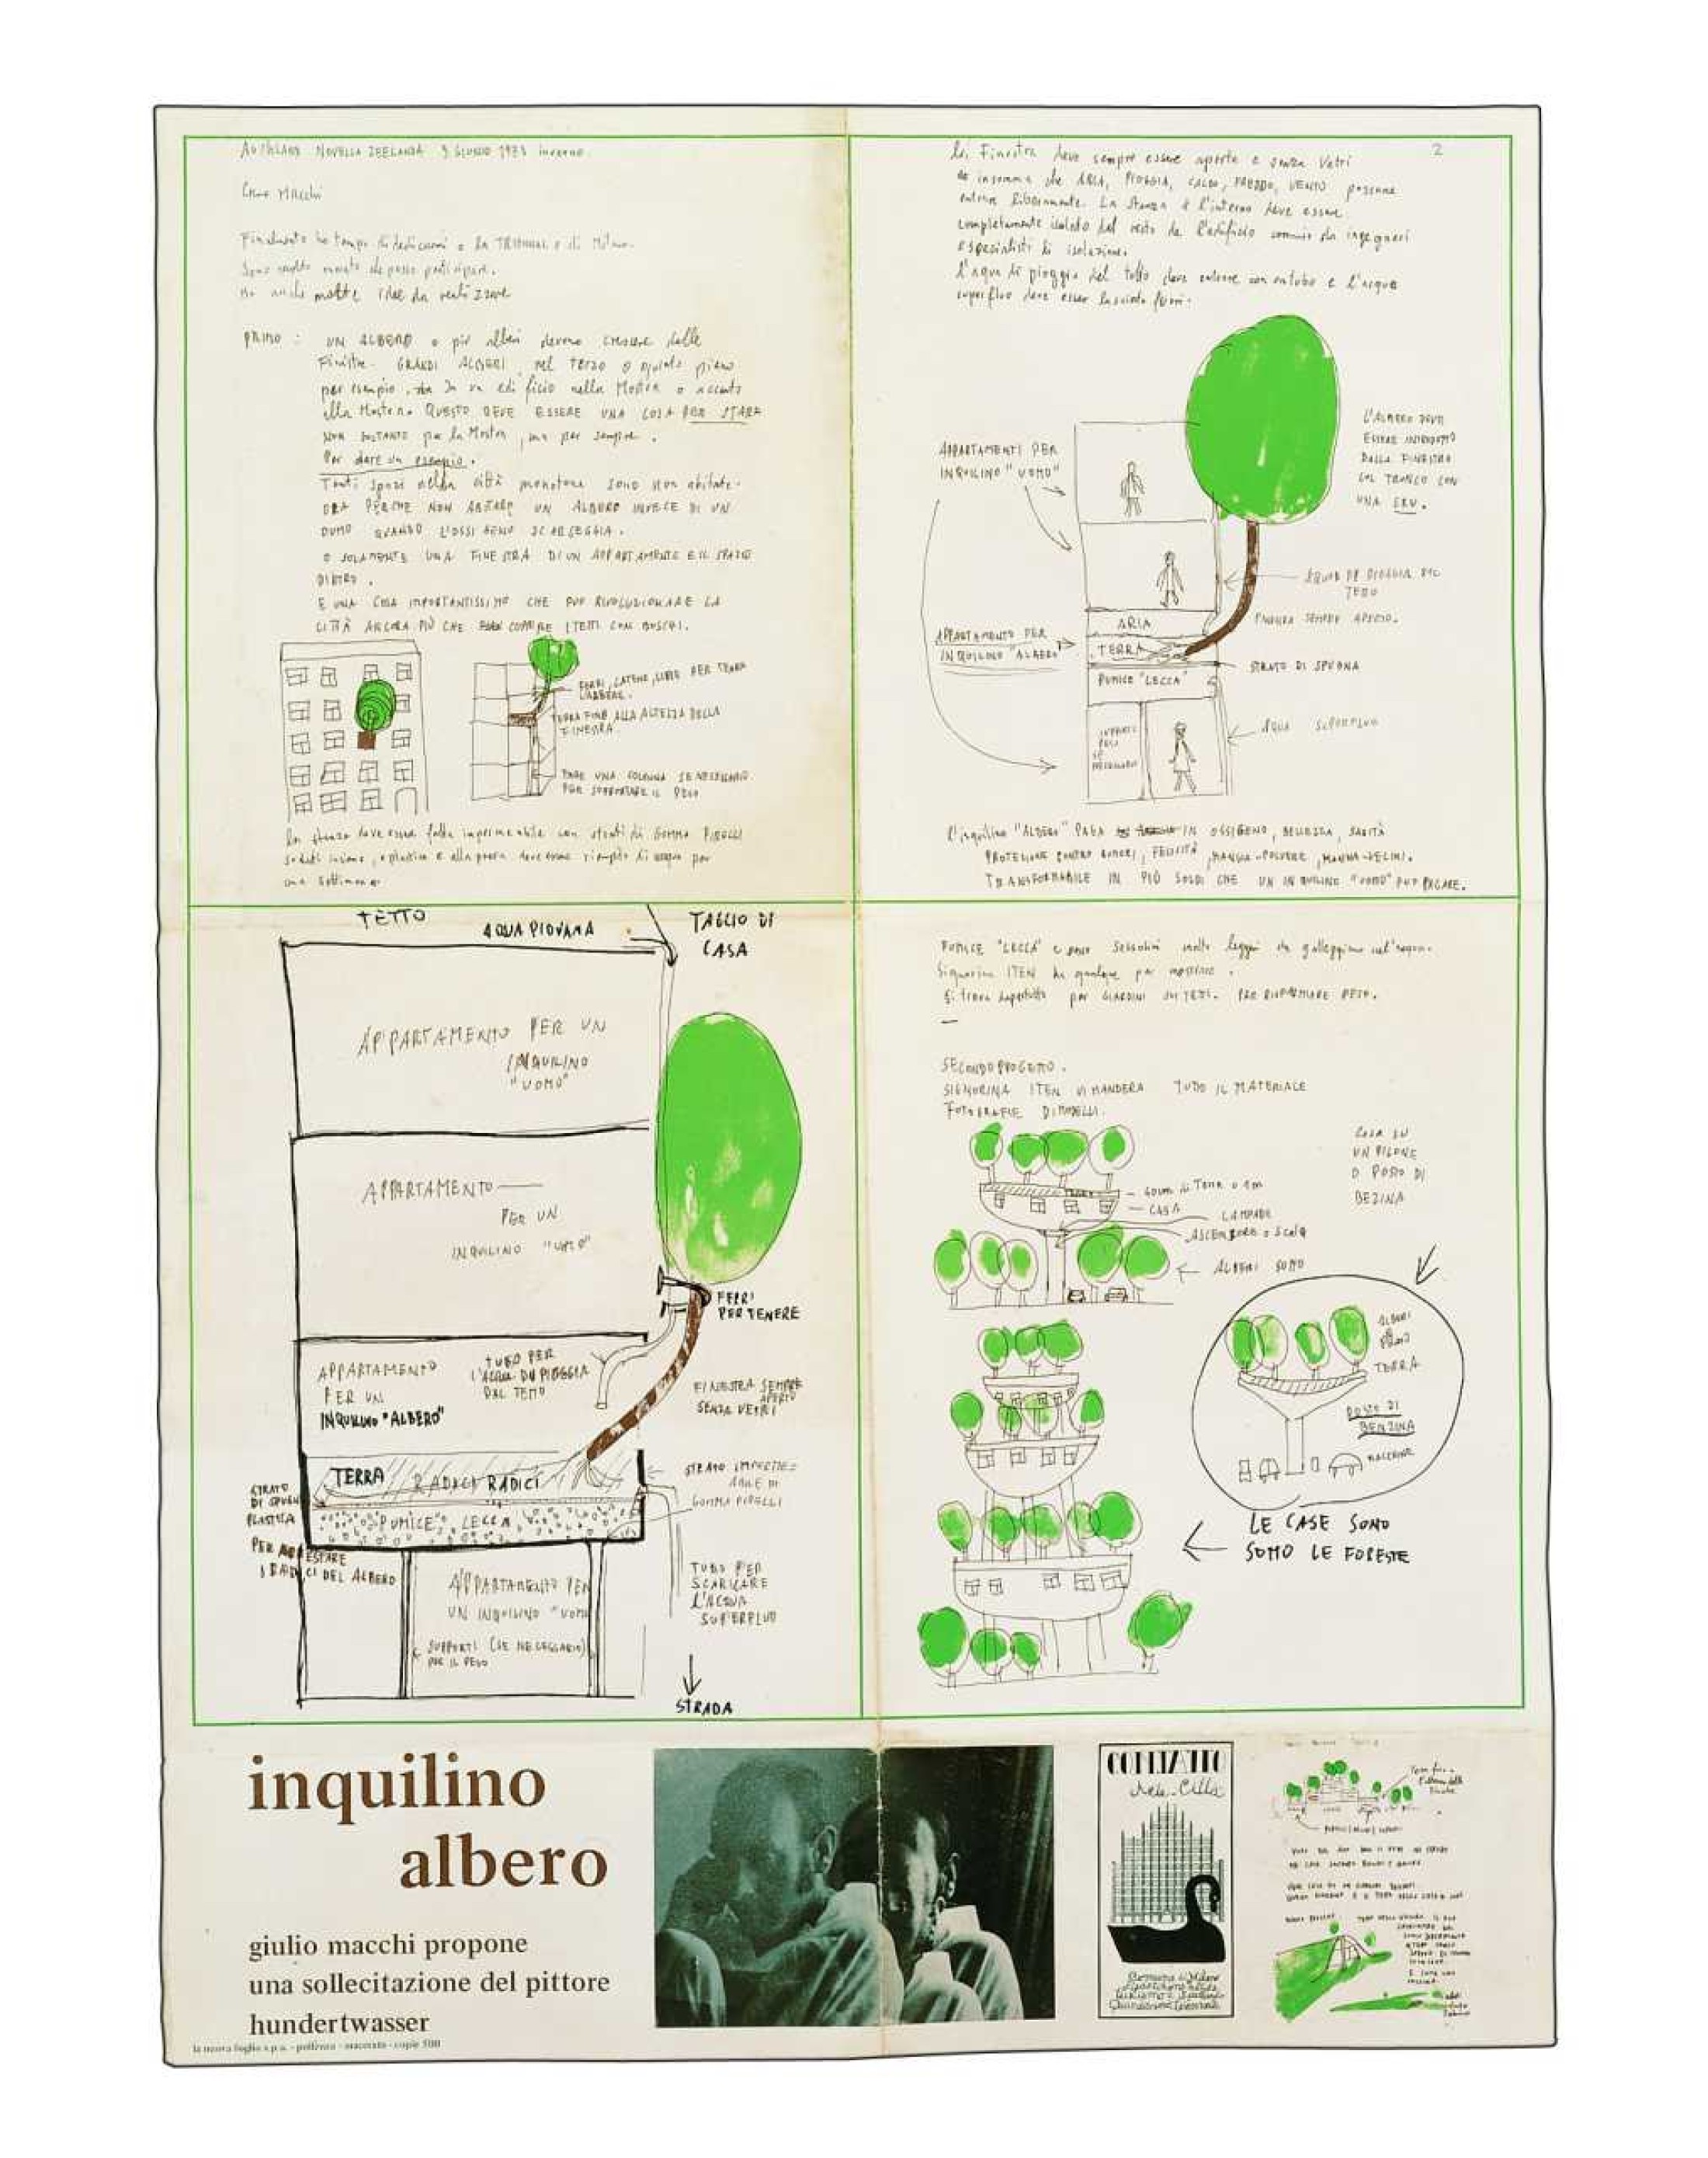 NOVELLA ZEELANDA 3 GIUGNO 1973 inverno
Caro Macchi
Finalmente ho tempo di dedicarmi a la TRIENNALE di Milano.
Sono molto contento che posso partecipare.
Ho anche molte idee da realizzare
PRIMO : UN ALBERO o più alberi devono crescere dalle
Finestre. GRANDI ALBERI nel TERZO o quinto piano
per esempio, in un edificio nella Mostra o accanto
alla Mostra. QUESTO DEVE ESSERE UNA COSA PER STARE
NON SOLTANTO per la Mostra, ma per sempre.
Per dare un esempio.
Tanti spazi nella città monotona sono non abitate.
ORA PERCHE NON ABITARE UN ALBERO INVECE DI UN
UOMO QUANDO L'OSSIGENO SCARSEGGIA.
O SOLAMENTE UNA FINESTRA DI UN APPARTAMENTE E IL SPAZIO
DIETRO.
E UNA COSA IMPORTANTISSIMO CHE PUO RIVOLUZIONARE LA
CITTÀ ANCORA PIÙ CHE COPRIRE I TETTI CON BOSCHI.
FERRI, CATENE, PER TENERE
L'ALBERE.
TERRA FINE ALLA ALTEZZA DELLA
FINESTRA.
UNA COLONNA SE NECESSARIO
PER SOPPORTARE IL PESO
La stanza deve essere fatta impermeabile con strati di GOMMA PIRELLI
saldati insieme, o plastica e alla prova deve essere riempito di acqua per
una settimana
2
La Finestra deve sempre essere aperta e senza Vetri
in somma che ARIA, PIOGGIA, CALDO, FREDDO, VENTO possano
entrare liberamente. La stanza a l'interno deve essere
completamente isolato dal resto de l'edificio da ingegneri
especialisti di isolazione.
l'aqua di pioggia del tetto deve entrare con un tubo e l'acqua
superfluo deve esser lasciato fuori.
APPARTAMENTI PER
INQUILINO "UOMO"
L'ALBERO DEVE
ESSERE INTRODOTTO
DALLA FINESTRA
COL TRONCO CON
UNA GRU.
AQUA DI PIOGGIA DEL
TETTO
ARIA
FINESTRA SEMPRE APERTO.
APPARTAMENTO PER
INQUILINO "ALBERO"
TERRA
STRATO DI SPUGNA
PUMICE "LECCA"
AQUA SUPERFLUO
SUPPORTI
PESO
SE
NECESSARIO
l'inquilino "ALBERO" PAGA IN OSSIGENO, BELLEZZA, SANITÀ
PROTEZIONE CONTRO RUMORI, FELICITÀ, MANGIA-POLVERE, MANGIA-VELINI.
TRANSFORMABILE IN PIÙ SOLDI CHE UN INQUILINE "UOMO" PUO PAGARE.
TETTO
AQUA PIOVANA
TAGLIO DI
CASA
APPARTAMENTO PER UN
INQUILINO
"UOMO"
APPARTAMENTO
PER UN
INQUILINO "UOMO"
FERRI
PER TENERE
APPARTAMENTO
PER UN
INQUILINO "ALBERO"
TUBO PER
L'ACQUA DI PIOGGIA
DAL TETTO
FINESTRA SEMPRE
APERTO
SENZA VETRI
TERRA RADICI RADICI
STRATO IMPERME=
ABILE DI
GOMMA PIRELLI
STRATO
DI SPUGNA
PLASTICA
PUMICE LECCA
PER ARRESTARE
I RADICI DEL ALBERO
APPARTAMENTO PER
UN INQUILINO "UOMO"
TUBO PER
SCARICARE
L'ACQUA
SUPERFLUO
SUPPORTI (SE NECESSARIO)
PER IL PESO
STRADA
PUMICE "LECCA" e sono sassolini molto leggeri da galleggiano sul'acqua.
Signorina ITEN ha qualque per mostrare.
Si trova dapertutto per GIARDINI SUI TETTI. PER RISPARMIARE PESO.
SECONDO PROGETTO.
SIGNORINA ITEN VI MANDERA TUTTO IL MATERIALE
FOTOGRAFIE DI MODELLI.
CASA SU
UN PILONE
O POSTO DI
BEZINA
60 cm di Terra o 1m
CASA
LAMPADE
ASCENSORE o SCALA
ALBERI SOTTO
ALBERI
TERRA
POSTO DI
BENZINA
MACCHINE
LE CASE SONO
SOTTO LE FORESTE
inquilino
albero
giulio macchi propone
una sollecitazione del pittore
hundertwasser
la nuova foglio s.p.a. - pollenza - macerata - copie 500
CONTATTO
Arte-Città
Comune di Milano